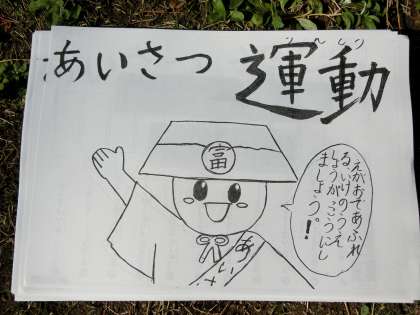 あいさつ運動
うんどう
富
えがおであふれ
るいけのうえ
しょうがっこうにし
ましょう。!
あいさつ